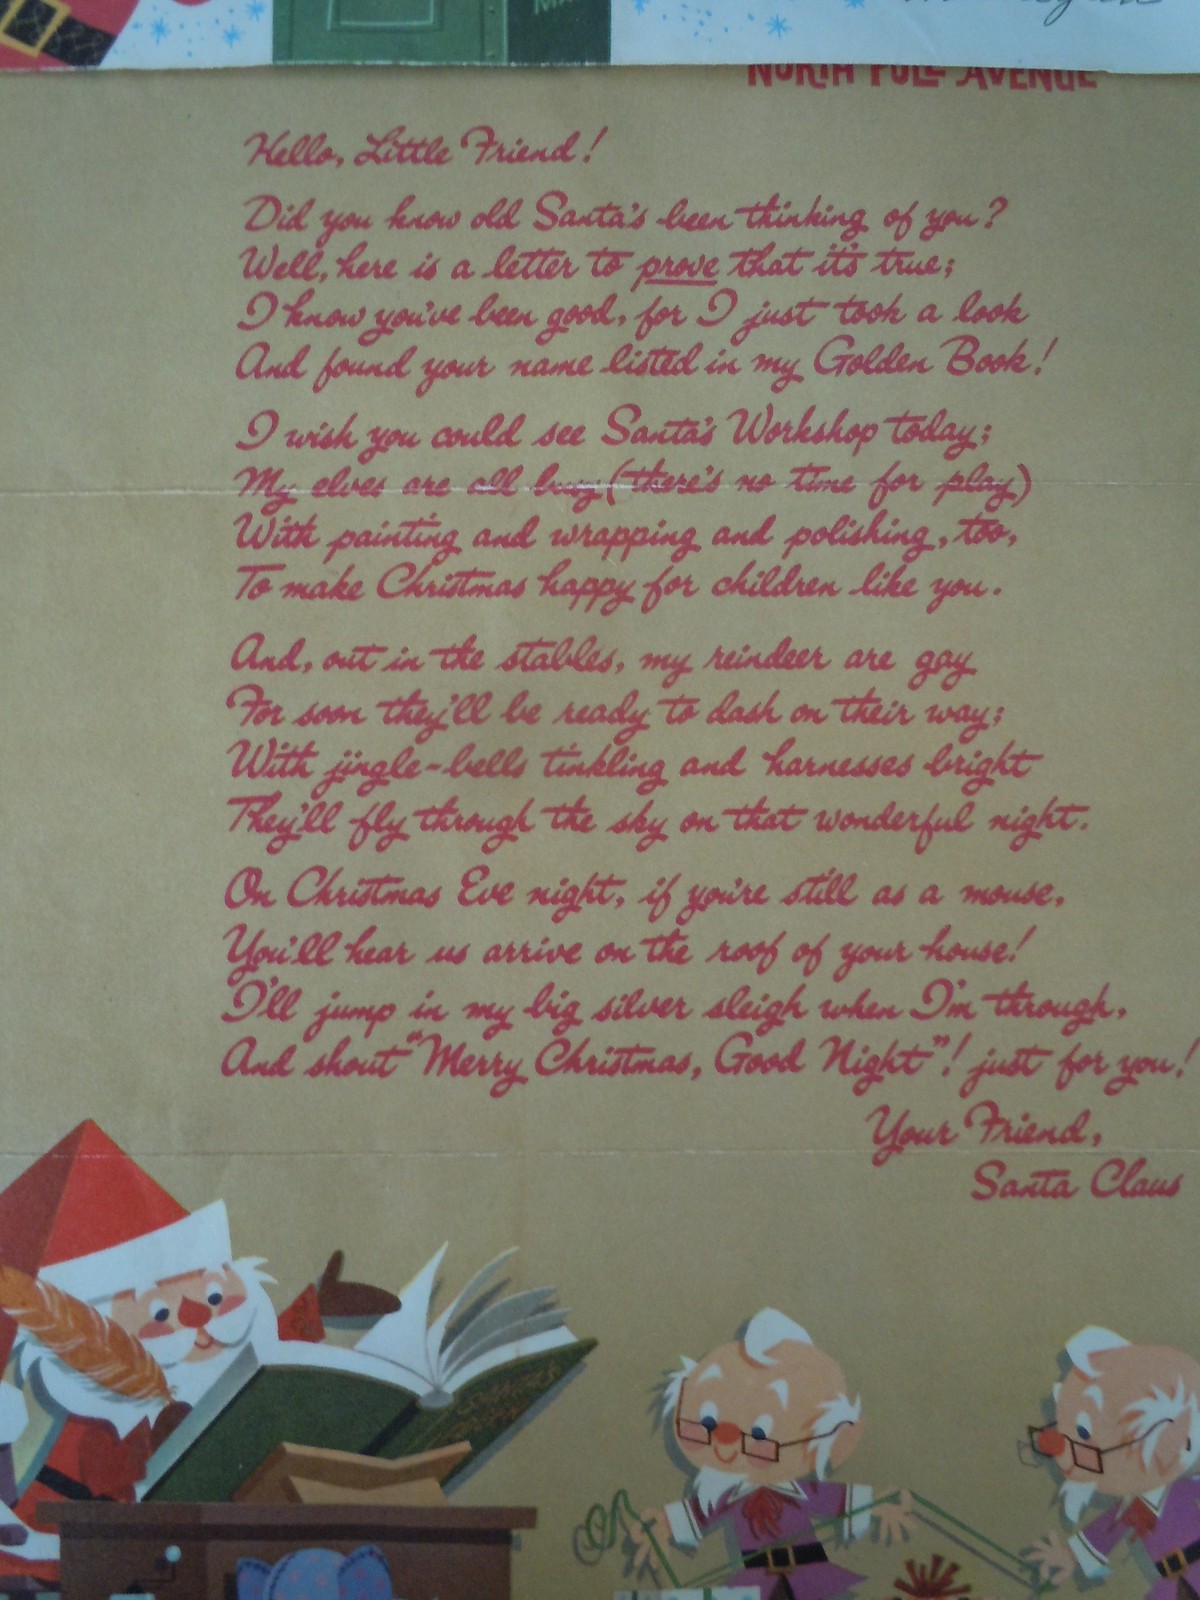 NORTH POLE AVENUE
Hello, Little Friend!
Did you know old Santa's been thinking of you?
Well, here is a letter to prove that it's true;
I know you've been good, for I just took a look
And found your name listed in my Golden Book!
I wish you could see Santa's Workshop today;
My elves are all busy (there's no time for play)
With painting and wrapping and polishing, too,
To make Christmas happy for children like you.
And, out in the stables, my reindeer are gay
For soon they'll be ready to dash on their way;
With jingle-bells tinkling and harnesses bright
They'll fly through the sky on that wonderful night.
On Christmas Eve night, if you're still as a mouse,
You'll hear us arrive on the roof of your house!
I'll jump in my big silver sleigh when I'm through,
And shout "Merry Christmas, Good Night"! just for you!
Your Friend,
Santa Claus